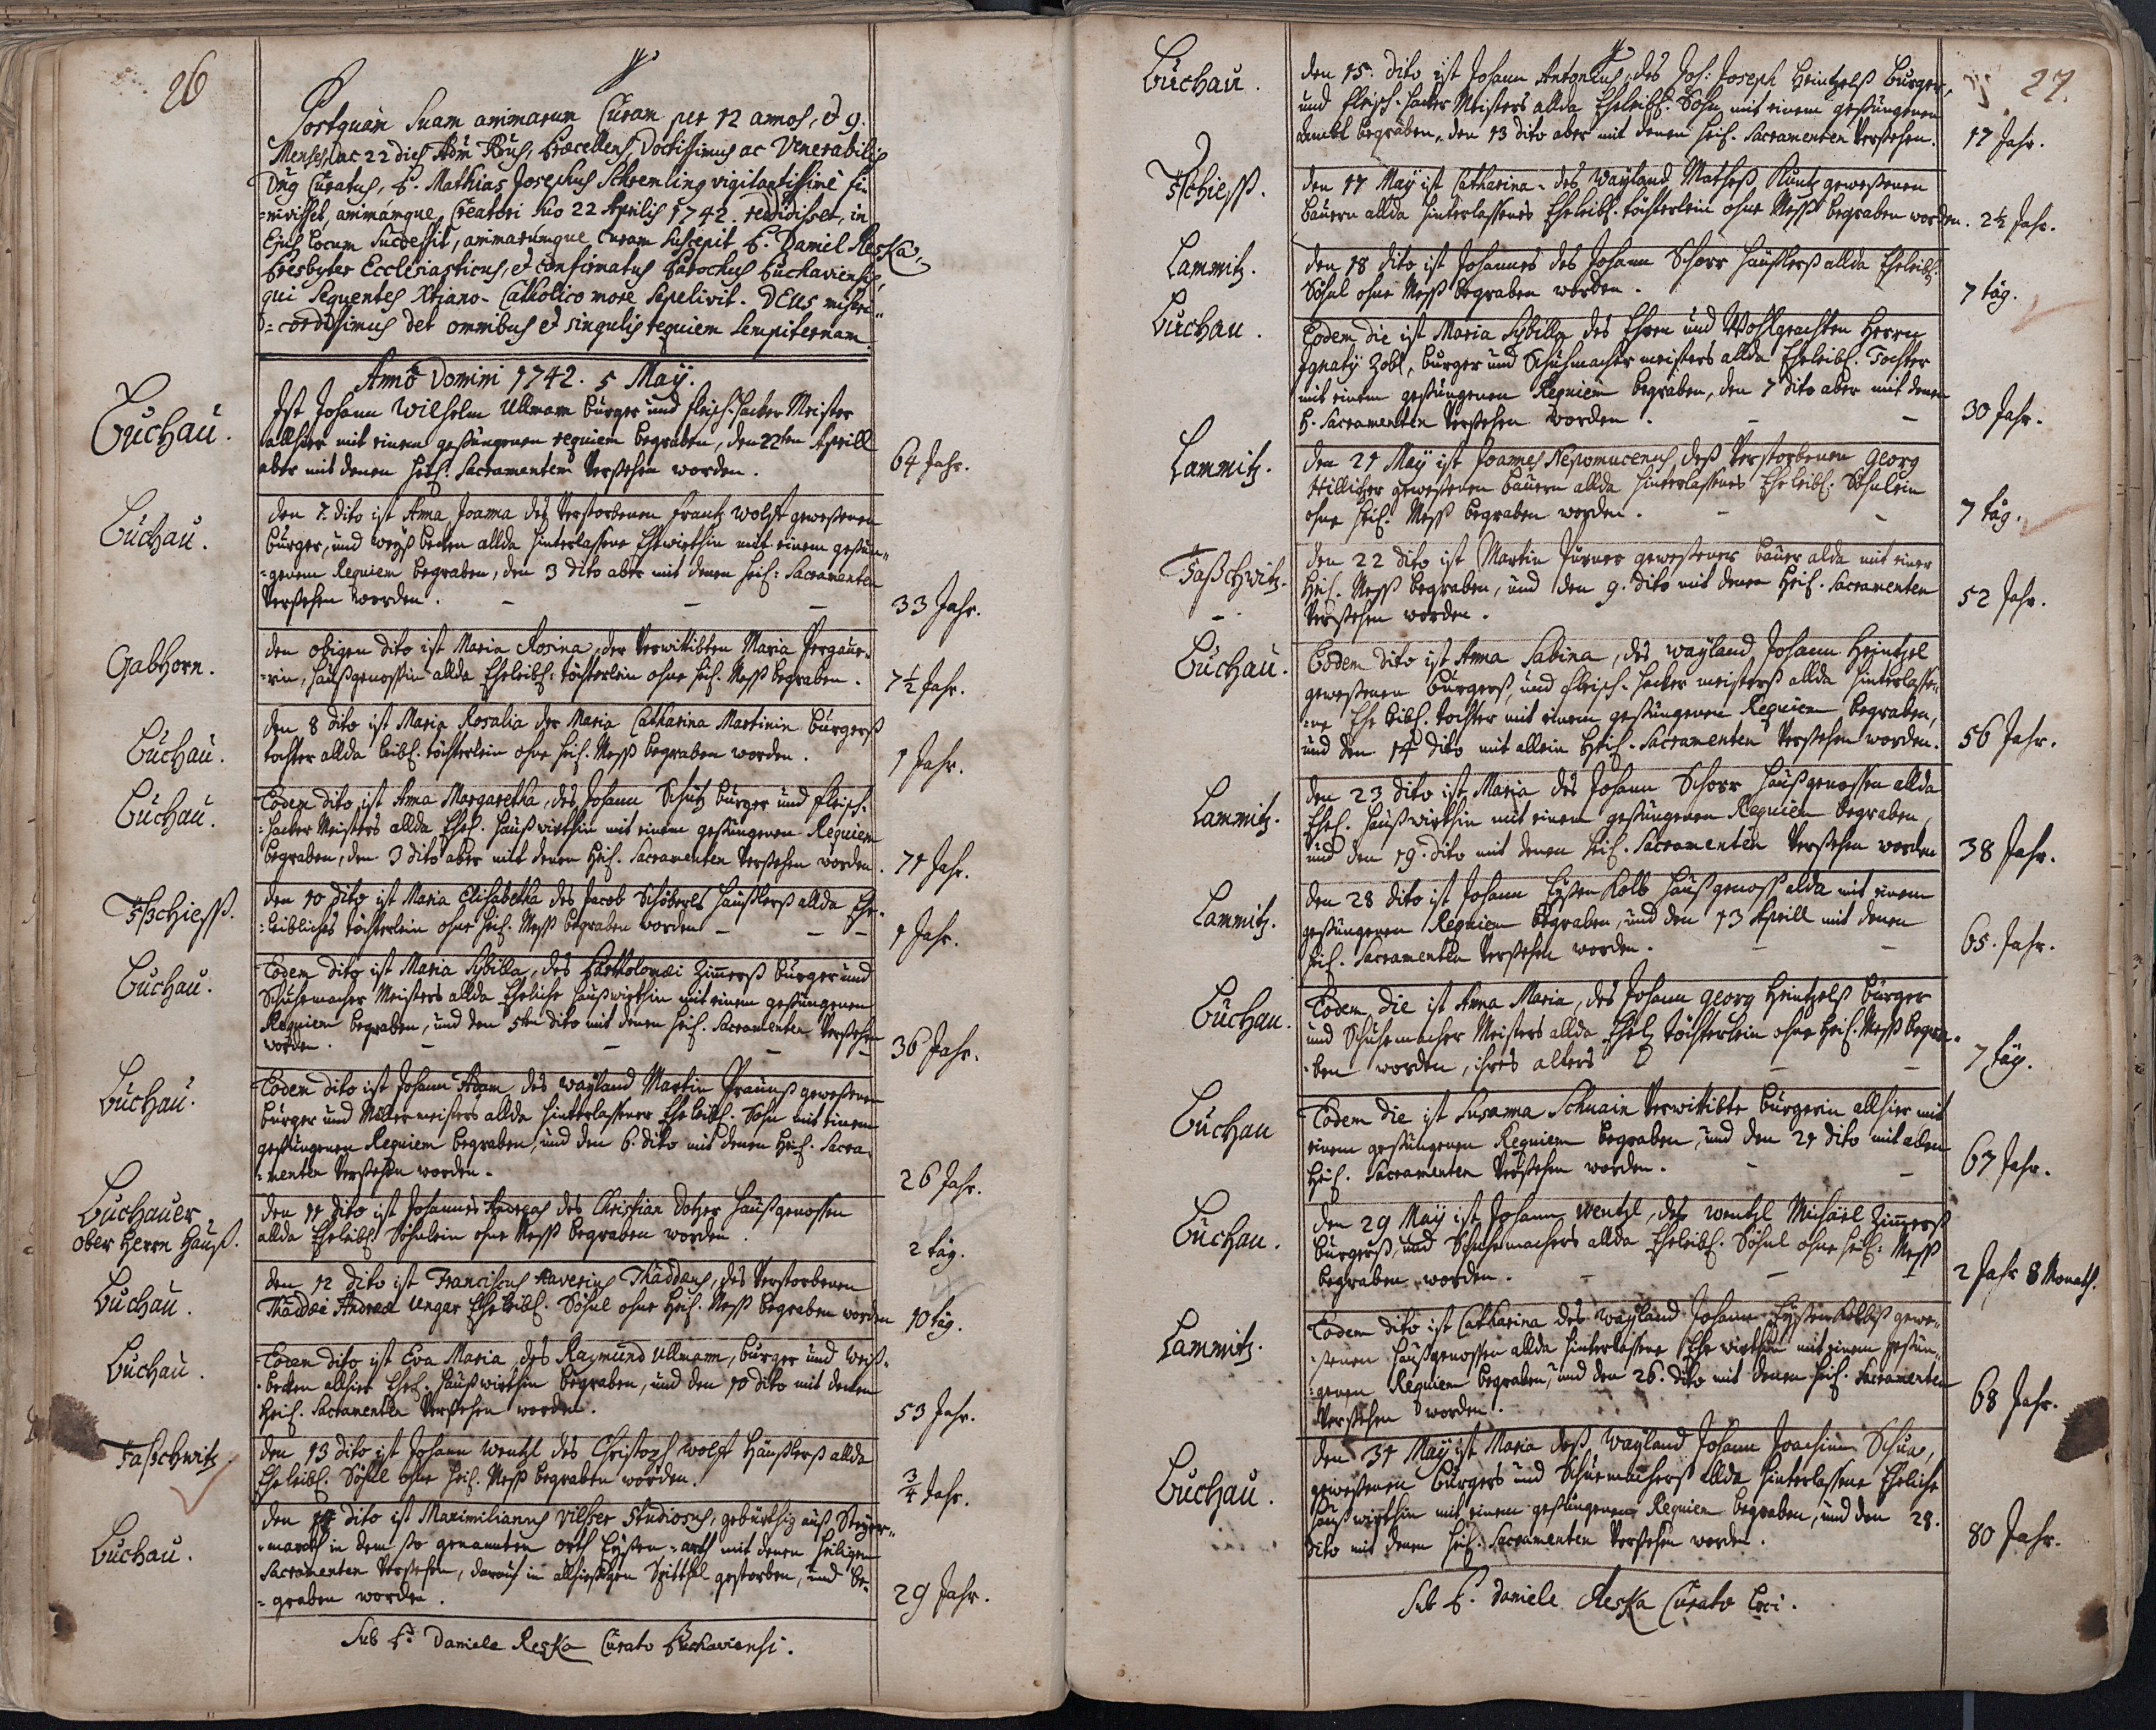 26
Postquam Suam animarum Curam per 12 annos, et 9.
Menses, ac 22 dies Adm Rdus, Præcellens, Doctissimus ac Venerabilis
Dns Curatus, P. Mathias Josephus Schremling vigilantissime fi-
=nivisset, animamque Creatori suo 22 Aprilis 1742. reddidisset, in
Ejus locum Successit, animarumque curam suscepit P. Daniel Reska,
Presbyter Ecclesiasticus, et confirmatus Parochus Buchaviensis,
qui Sequentes Xtiano-Catholico more Sepelivit. DEus miseri-
=cordissimus det omnibus et singulis requiem sempiternam.
Anno Domini 1742. 5 Maÿ.
Buchau.
Ist Johann Wilhelm Ullmann burger und fleisch-hacker Meister
allhier mit einem gesungenen requiem begraben, den 22ten Aprill
aber mit denen heil. Sacramenten Versehen worden.
64 Jahr.
Buchau.
den 7. dito ist Anna Joanna des Verstorbenen Frantz Wolff geweßenen
burger, und weiß becken allda hinterlassene Ehewirthin mit einem gesun-
=genem Requiem begraben, den 3 dito aber mit denen heil: Sacramenten
Versehen worden.
33 Jahr.
Gabhorn.
den obigen dito ist Maria Rosina, der Verwittibten Maria
=rin, haußgenossin allda Eheleibl: töchterlein ohne heil. Meß begraben.
7½ Jahr.
Buchau.
den 8 dito ist Maria Rosalia der Maria Catharina Martinin burgerß
tochter allda leibl. töchterlein ohne heil. Meß begraben worden.
1 Jahr.
Buchau.
Eodem dito ist Anna Margaretha, des Johann Schütz burger und fleisch-
=hacker Meisters allda Ehel. haußwirthin mit einem gesungenen Requiem
begraben, den 3 dito aber mit denen heil. Sacramenten Versehen worden.
71 Jahr.
Tßchieß.
den 10 dito ist Maria Elisabetha des Jacob Schöberls haußlerß allda Ehe-
=leibliches töchterlein ohne heil. Meß begraben worden
1 Jahr.
Buchau.
Eodem dito ist Maria Sybilla, des Bartholomæi Zimerß burger und
Schuhemacher Meisters allda Eheliche haußwirthin mit einem gesungenen
Requiem begraben, und den 5ten dito mit denen heil. Sacramenten Versehen
worden.
36 Jahr.
Buchau.
Eodem dito ist Johann Adam des wayland Martin Prauns geweßenen
burger und meisters allda hinterlassener Eheleibl. Sohn mit einem
gesungenen Requiem begraben, und den 6. dito mit denen heil. Sacra-
=menten Versehen worden.
26 Jahr.
Buchauer
ober Herrn Hauß.
den 11 dito ist Johannes des Christian Dotzer haußgenossen
allda Eheleibl Söhnlein ohne Meß begraben worden.
2 täg.
Buchau.
den 12 dito ist Franciscus Xaverius Thaddæus, des Verstorbenen
Thaddæi Andreæ Ungar Eheleibl. Söhnl ohne heil. Meß begraben worden
10 täg.
Buchau.
Eodem dito ist Eva Maria, des Raymund Ullmann, burger und weiß-
=becken allhier Ehel. haußwirthin begraben, und den 10 dito mit denen
heil. Sacramenten Versehen worden.
53 Jahr.
Taßchwitz
den 13 dito ist Johann Wentzl des Christoph Wolff Häußlerß allda
Eheleibl. Söhnl ohne heil. Meß begraben worden.
¾ Jahr.
Buchau.
den 14 dito ist Maximilianus Vilser Studiosus, gebürthig auß Steyer-
=march in dem so genannten orth Eysen-arth mit denen heiligen
Sacramenten Versehen, darauf in allhießigen Spitthl gestorben, und be-
=graben worden.
29 Jahr.
Sub P. Daniele Reska Curato Buchaviensi.
27.
Buchau.
den 15. dito ist Johann Antonius, des Joh: Joseph Heintzelß burger,
und fleisch-hacker Meisters allda Eheleibl. Sohn mit einem gesungenen
begraben, den 13 dito aber mit denen heil. Sacramenten Versehen.
17 Jahr.
Tschieß.
den 17 May ist Catharina des wayland Matheß Kuntz geweßenen
bauern allda hinterlassenes Eheleibl. töchterlein ohne Meß begraben worden.
2½ Jahr.
Lammitz.
den 18 dito ist Johannes des Johann Schorr haußlerß allda Eheleibl.
Söhnl ohne Meß begraben worden.
7 täg.
Buchau.
Eodem die ist Maria Sybilla des Ehren und Wohlgeachten Herrn
Ignatÿ Zobl, burger und Schuhmacher meisters allda Eheleibl. Tochter
mit einem gesungenen Requiem begraben, den 7 dito aber mit denen
h. Sacramenten Versehen worden.
30 Jahr.
Lammitz.
den 21 Maÿ ist Joannes Nepomucenus, deß Verstorbenen Georg
Hillicher geweßenen bauern allda hinterlassenes Eheleibl. Söhnlein
ohne heil. Meß begraben worden.
7 täg.
Taßchwitz.
den 22 dito ist Martin Purner geweßener bauer alda mit einer
Heil. Meß begraben, und den 9. dito mit denen heil. Sacramenten
Versehen worden.
52 Jahr.
Buchau.
Eodem dito ist Anna Sabina, des wayland Johann Heintzel
geweßenen burgerß, und fleisch-hacker meisterß allda hinterlasse-
=ne Eheleibl. tochter mit einem gesungenen Requiem begraben,
und den 14 dito mit allein Heil. Sacramenten Versehen worden.
56 Jahr.
Lammitz.
den 23 dito ist Maria des Johann Schorr haußgenossen allda
Ehel. haußwirthin mit einem gesungenen Requiem begraben,
und den 19. dito mit denen heil. Sacramenten Versehen worden
38 Jahr.
Lammitz.
den 28 dito ist Johann Eyßen Kolb haußgenoß alda mit einem
gesungenen Requiem begraben, und den 13 Aprill mit denen
heil. Sacramenten Versehen worden.
65. Jahr.
Buchau.
Eodem die ist Anna Maria, des Johann Georg Heintzelß burger
und Schuhemacher Meisters allda Ehel. töchterlein ohne heil. Meß begra-
=ben worden, ihres alters
7 täg.
Buchau
Eodem die ist Susanna Schuain Verwittibte burgerin allhier mit
einem gesungenen Requiem begraben, und den 21 dito mit allen
heil. Sacramenten Versehen worden.
67 Jahr.
Buchau.
den 29 Maÿ ist Johann Wentzl, des Wentzl Michäel Zimerß
burgerß, und Schuhemachers allda Eheleibl. Söhnl ohne heil: Meß
begraben worden.
2 Jahr 8 Monath.
Lammitz.
Eodem dito ist Catharina des wayland Johann Eyßen Kolbß gewe-
=ßenen haußgenossen allda hinterlassene Ehewirthin mit einem gesun-
=genen Requiem begraben, und den 26. dito mit denen heil. Sacramenten
Versehen worden.
68 Jahr.
Buchau.
den 31 Maÿ ist Maria deß wayland Johann Joachim Schua,
geweßenen burgers und Schuemacherß allda hinterlassene Eheliche
haußwirthin mit einem gesungenen Requiem begraben, und den 28.
dito mit denen heil. Sacramenten Versehen worden.
80 Jahr.
Sub P. Daniele Reska Curato loci.